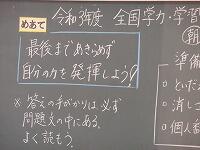 めあて
令和3年度 全国学力・学習
最後まであきらめず
自分の力を発揮しよう!
※ 答えの手がかりは必ず
問題文の中にある。
よく読もう。
朝
準備
○
○消しゴ
○個人番